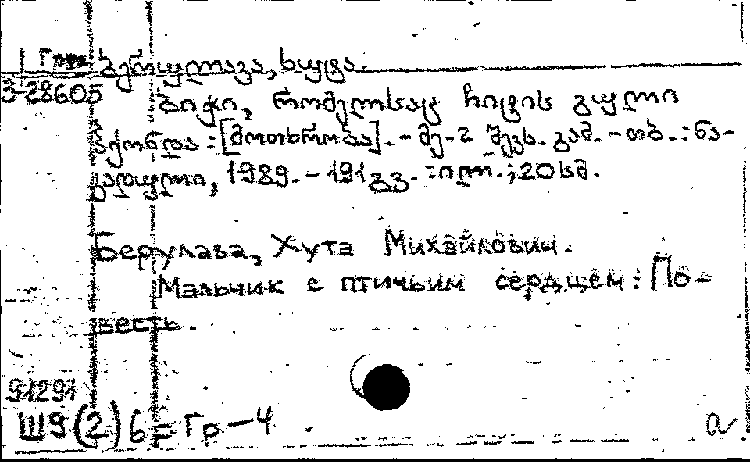 Грез ბერულავა, ხუტა.
3-28605 ბიჭი, რომელსაც ჩიტის გული
ჰქონდა : [მოთხრობა]. - მე-2 შევს. გამ. - თბ. : ნა-
კადული, 1989. - 191 გვ. : ილ. ; 20 სმ.
Берулава, Хута Михайлович.
Мальчик с птичьим сердцем : По-
весть.
91291
Ш9(2)6=Гр-4 а